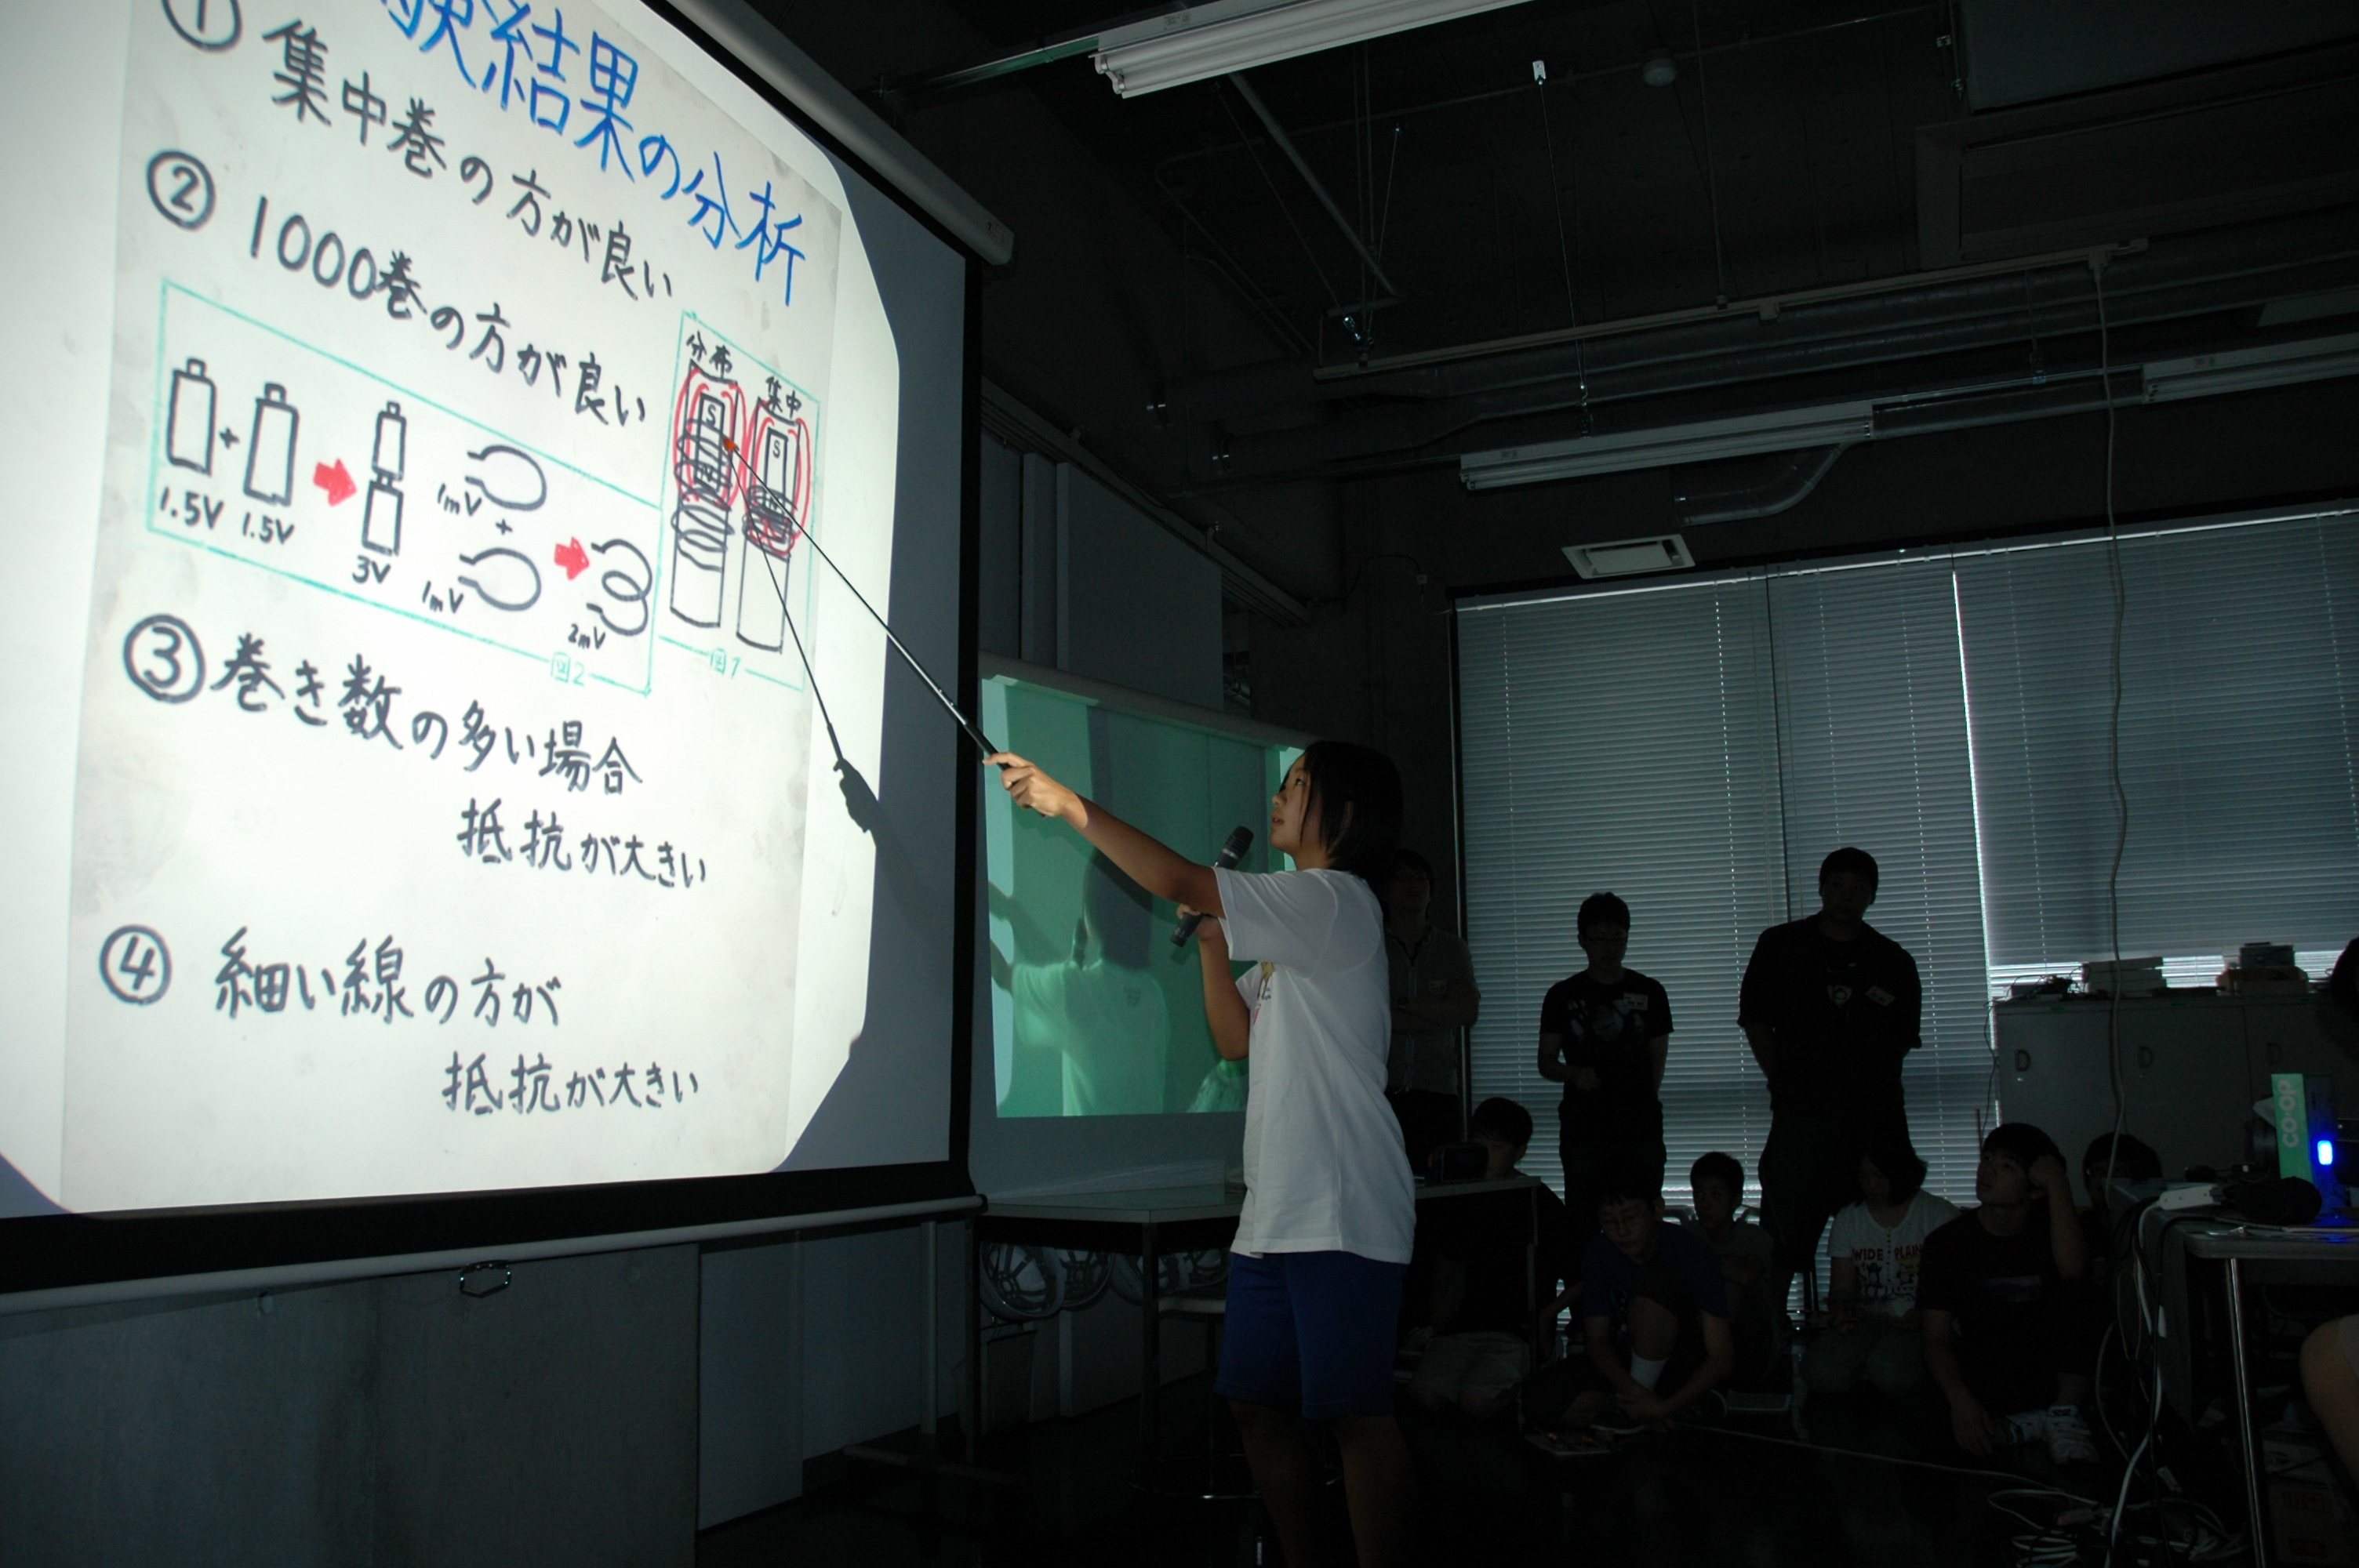 験結果の分析
① 集中巻の方が良い
② 1000巻の方が良い
分布 集中
S S
1.5V + 1.5V 3V
1mV + 1mV 2mV
図2 図1
③ 巻き数の多い場合
抵抗が大きい
④ 細い線の方が
抵抗が大きい
CO·OP
WIDE PLAIN